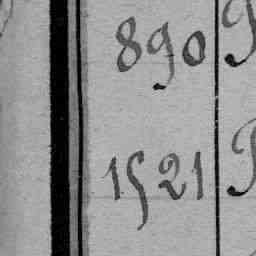 890
1521